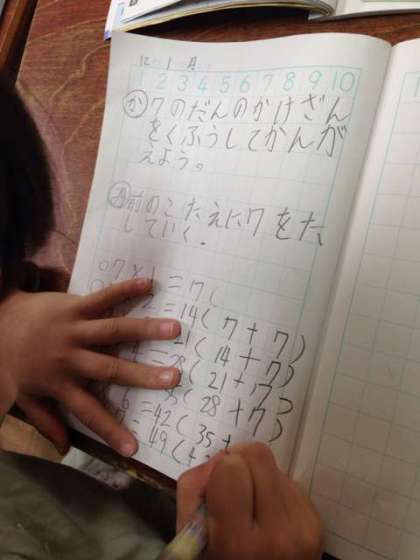 12 1 月
1 2 3 4 5 6 7 8 9 10
か 7のだんのかけざん
をくふうしてかんが
えよう。
お 前のこたえに7をた
していく.
7×1=7(
2=14(7+7)
21(14+7)
4=28(21+7)
(28+7)
6=42(35+
=49(4